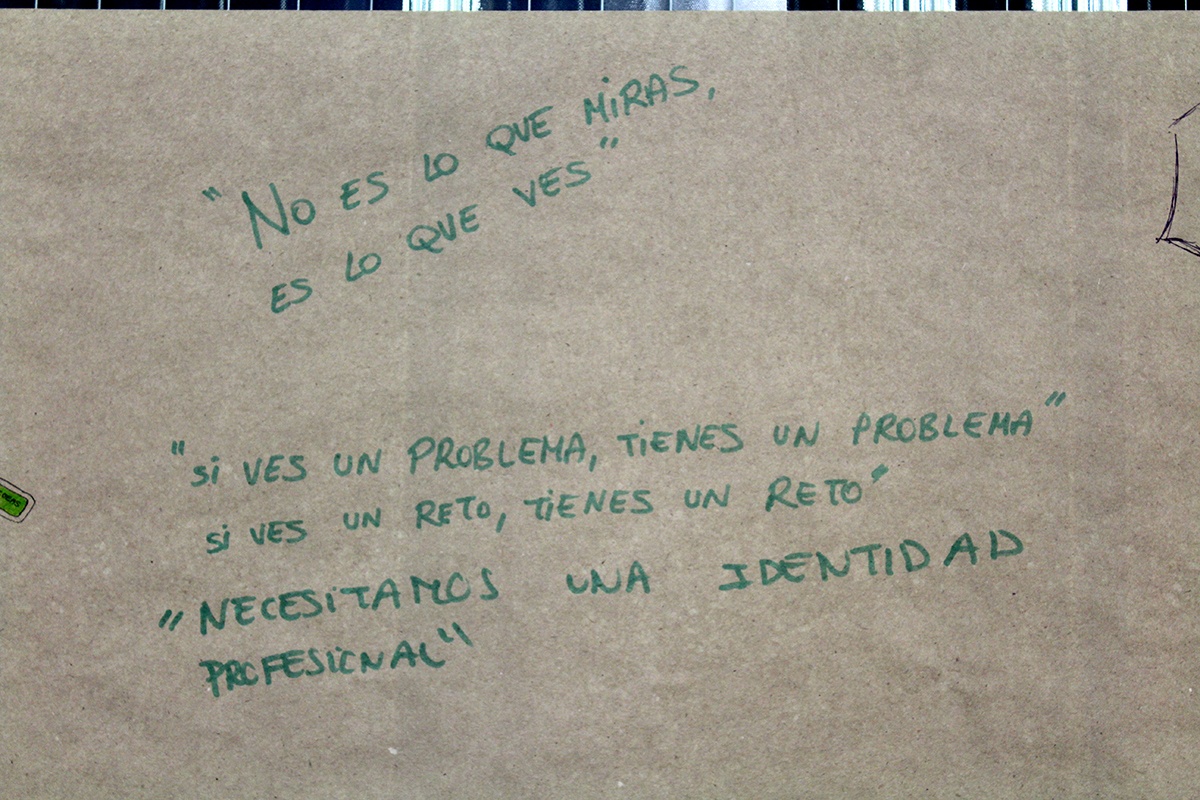 "No ES LO QUE MiRAS,
ES LO QUE VES"
"Si VES UN PROBLEMA, TiENES UN PROBLEMA"
Si VES UN RETO, TiENES UN RETO"
"NECESiTAMOS UNA IDENTIDAD
PROFESiONAL"